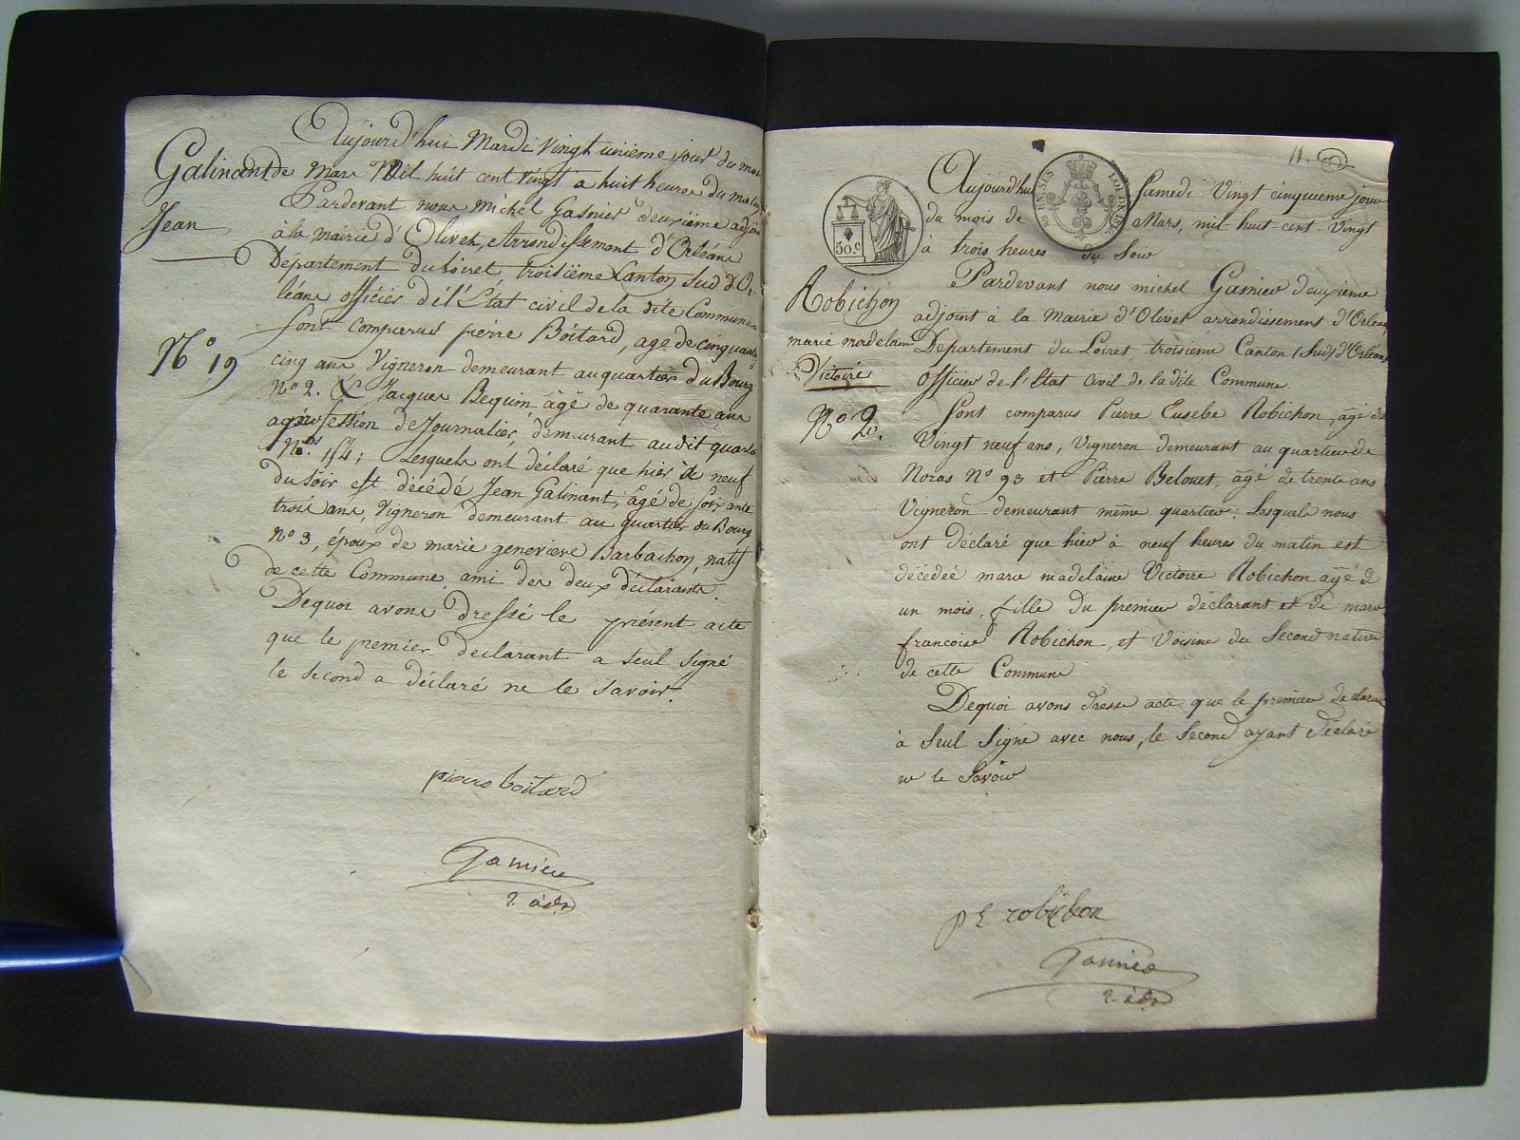 Aujourd'hui Mardi vingt unième jour du mois
Galinant de Mars Mil huit cent vingt a huit heures du matin
Jean
Pardevant nous Michel Gasnier deuxième adjoint
à la mairie d'Olivet, Arrondissement d'Orléans
Département du Loiret troisième Canton Sud d'Or-
léans officier de l'État civil de la dite Commune
N° 19
Sont comparus pierre Boitard, age de cinquante
cinq ans Vigneron demeurant au quartier du Bourg
N° 2. & Jacques Bequin, âgé de quarante ans
profession de Journalier, demeurant au dit quartier
N° 54; Lesquels ont déclaré que hier à neuf
du soir est décédé Jean Galinant, âgé de soixante
trois ans, Vigneron demeurant au quartier du Bourg
N° 3, époux de marie genevieve Barbachon, natif
de cette Commune, ami des deux déclarants.
Dequoi avons Dressé le présent acte
que le premier Déclarant a seul signé
le second a déclaré ne le savoir.
pierre boitard
Gasnier
2. adj
11.
50.c
Aujourd'hui Samedi Vingt cinquieme jour
du mois de Mars, mil huit cent Vingt
à trois heures du Soir
Robichon
marie madelaine
Victoire
N° 20.
Pardevant nous michel Gasnier deuxieme
adjoint à la Mairie d'Olivet arrondissement d'Orléans
Departement du Loiret, troisieme Canton (Sud) d'Orléans
officier de l'Etat Civil de la dite Commune
Sont comparus Pierre Eusebe Robichon, âgé de
Vingt neuf ans, Vigneron demeurant au quartier de
Noras N° 93 et Pierre Belouet, âgé de trente ans
Vigneron demeurant même quartier. Lesquels nous
ont déclaré que hier à neuf heures du matin est
décédée marie madelaine Victoire Robichon agée d
un mois, fille du premier déclarant et de marie
francoise Robichon, et Voisine du Second native
de cette Commune
Dequoi avons dressé acte que le premier declarant
à Seul Signé avec nous, le Second ayant déclaré
ne le Savoir
p E robichon
Gasnier
2. adj